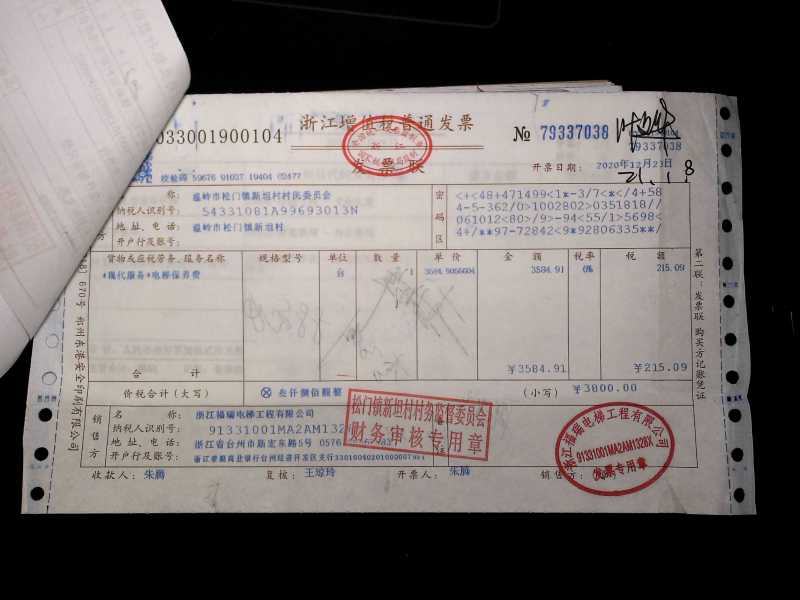 033001900104
浙江增值税普通发票
发票联
№ 79337038
79337038
开票日期： 2020年12月23日
21.1.8
校验码 59676 91037 19404 02477
称： 温岭市松门镇新坦村村民委员会
纳税人识别号： 54331081A99693013N
地址、电话： 温岭市松门镇新坦村
开户行及账号：
密码区
<+<48+471499<1*-3/7<*</4+58
4-5-362/0>1002802>0351818//
061012<80>/9>-94<55/1>5698<
4+/**97-72842<9*92806335**/
货物或应税劳务、服务名称 规格型号 单位 数量 单价 金额 税率 税额
*现代服务*电梯保养费 台 1 3584.9056604 3584.91 6% 215.09
合计 ￥3584.91 ￥215.09
价税合计（大写） ⊗ 叁仟捌佰圆整 （小写） ￥3800.00
销售方
名称： 浙江福瑞电梯工程有限公司
纳税人识别号： 91331001MA2AM1328X
地址、电话： 浙江省台州市 宏东路5号 0576
开户行及账号：
收款人： 朱腾 复核： 王琼玲 开票人： 朱腾 销售方：
第二联：发票联 购买方记账凭证
670号 郑州东港安全印刷有限公司
松门镇新坦村村务监督委员会
财务审核专用章
浙江福瑞电梯工程有限公司
91331001MA2AM1328X
发票专用章